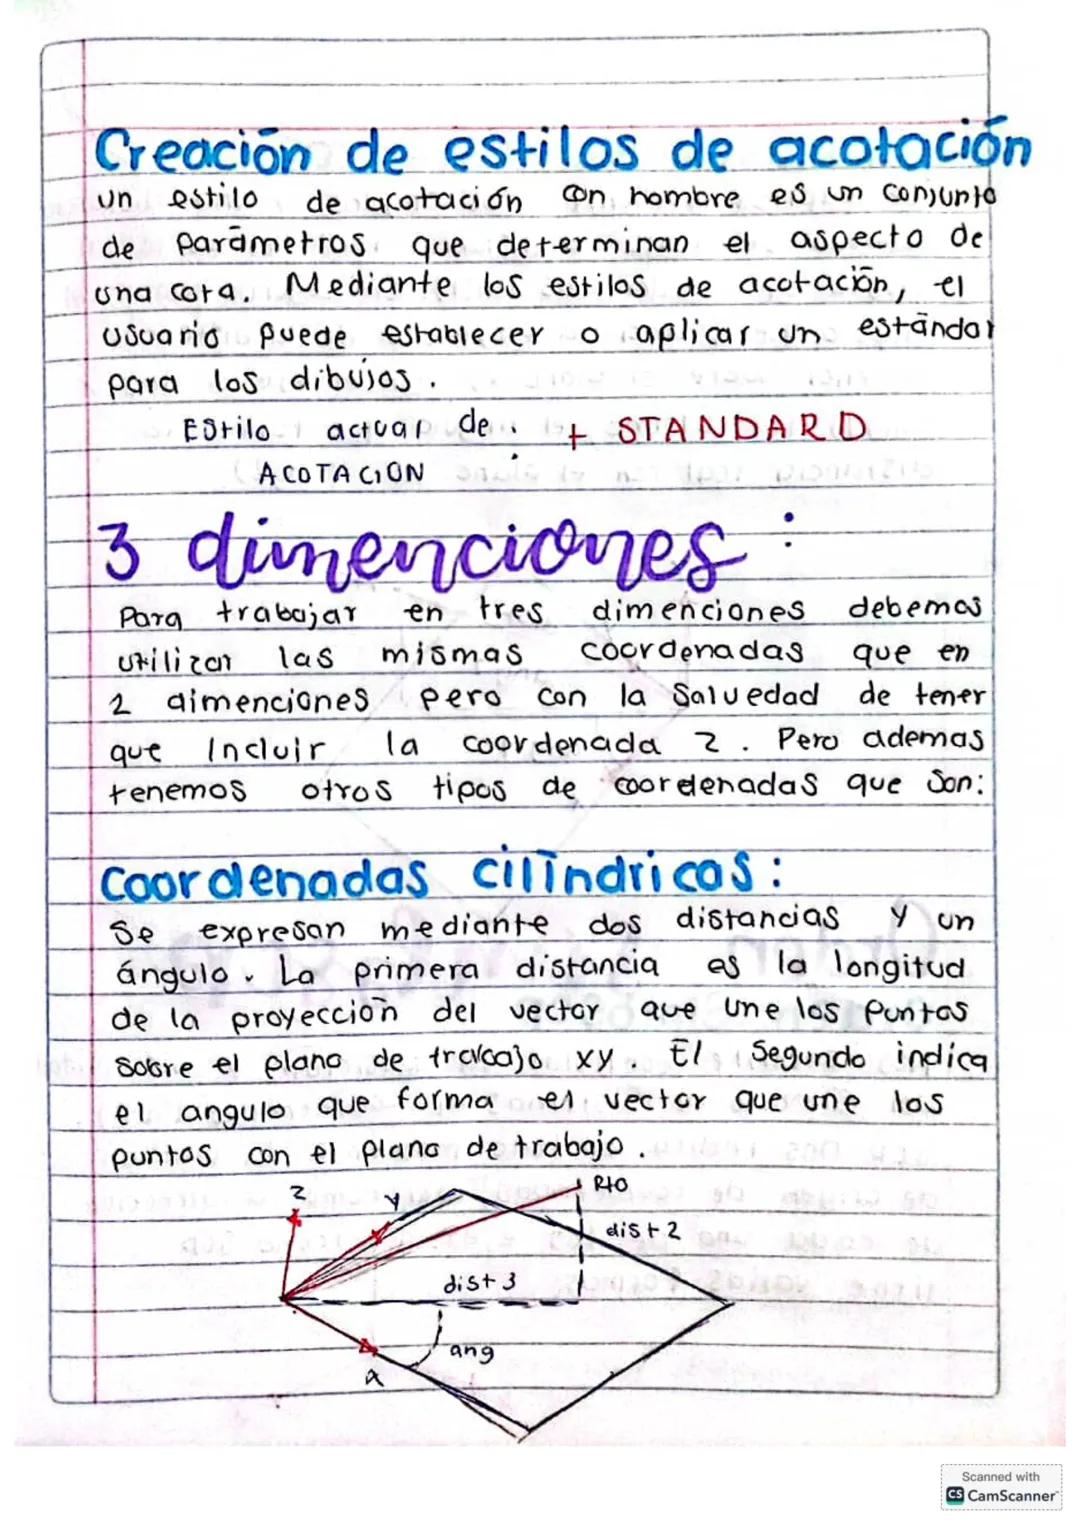 Creación de estilos de acotación
un estilo de acotación con nombre es un conjunto
de parámetros que determinan el aspecto de
una cota. Mediante los estilos de acotación, el
usuario puede establecer o aplicar un estándar
para los dibujos.
Estilo actual de : + STANDARD
ACOTACION
3 dimenciones :
Para trabajar en tres dimenciones debemos
utilizar las mismas coordenadas que en
2 dimenciones pero con la Salvedad de tener
que Incluir la coordenada z. Pero ademas
tenemos otros tipos de coordenadas que Son:
Coordenadas cilíndricas:
Se expresan mediante dos distancias y un
ángulo. La primera distancia es la longitud
de la proyección del vector que une los Puntos
Sobre el plano de trabajo xy. El Segundo indica
el angulo que forma el vector que une los
puntos con el plano de trabajo.
z
y
Pto
dist 2
dist 3
ang
x
Scanned with
CS CamScanner